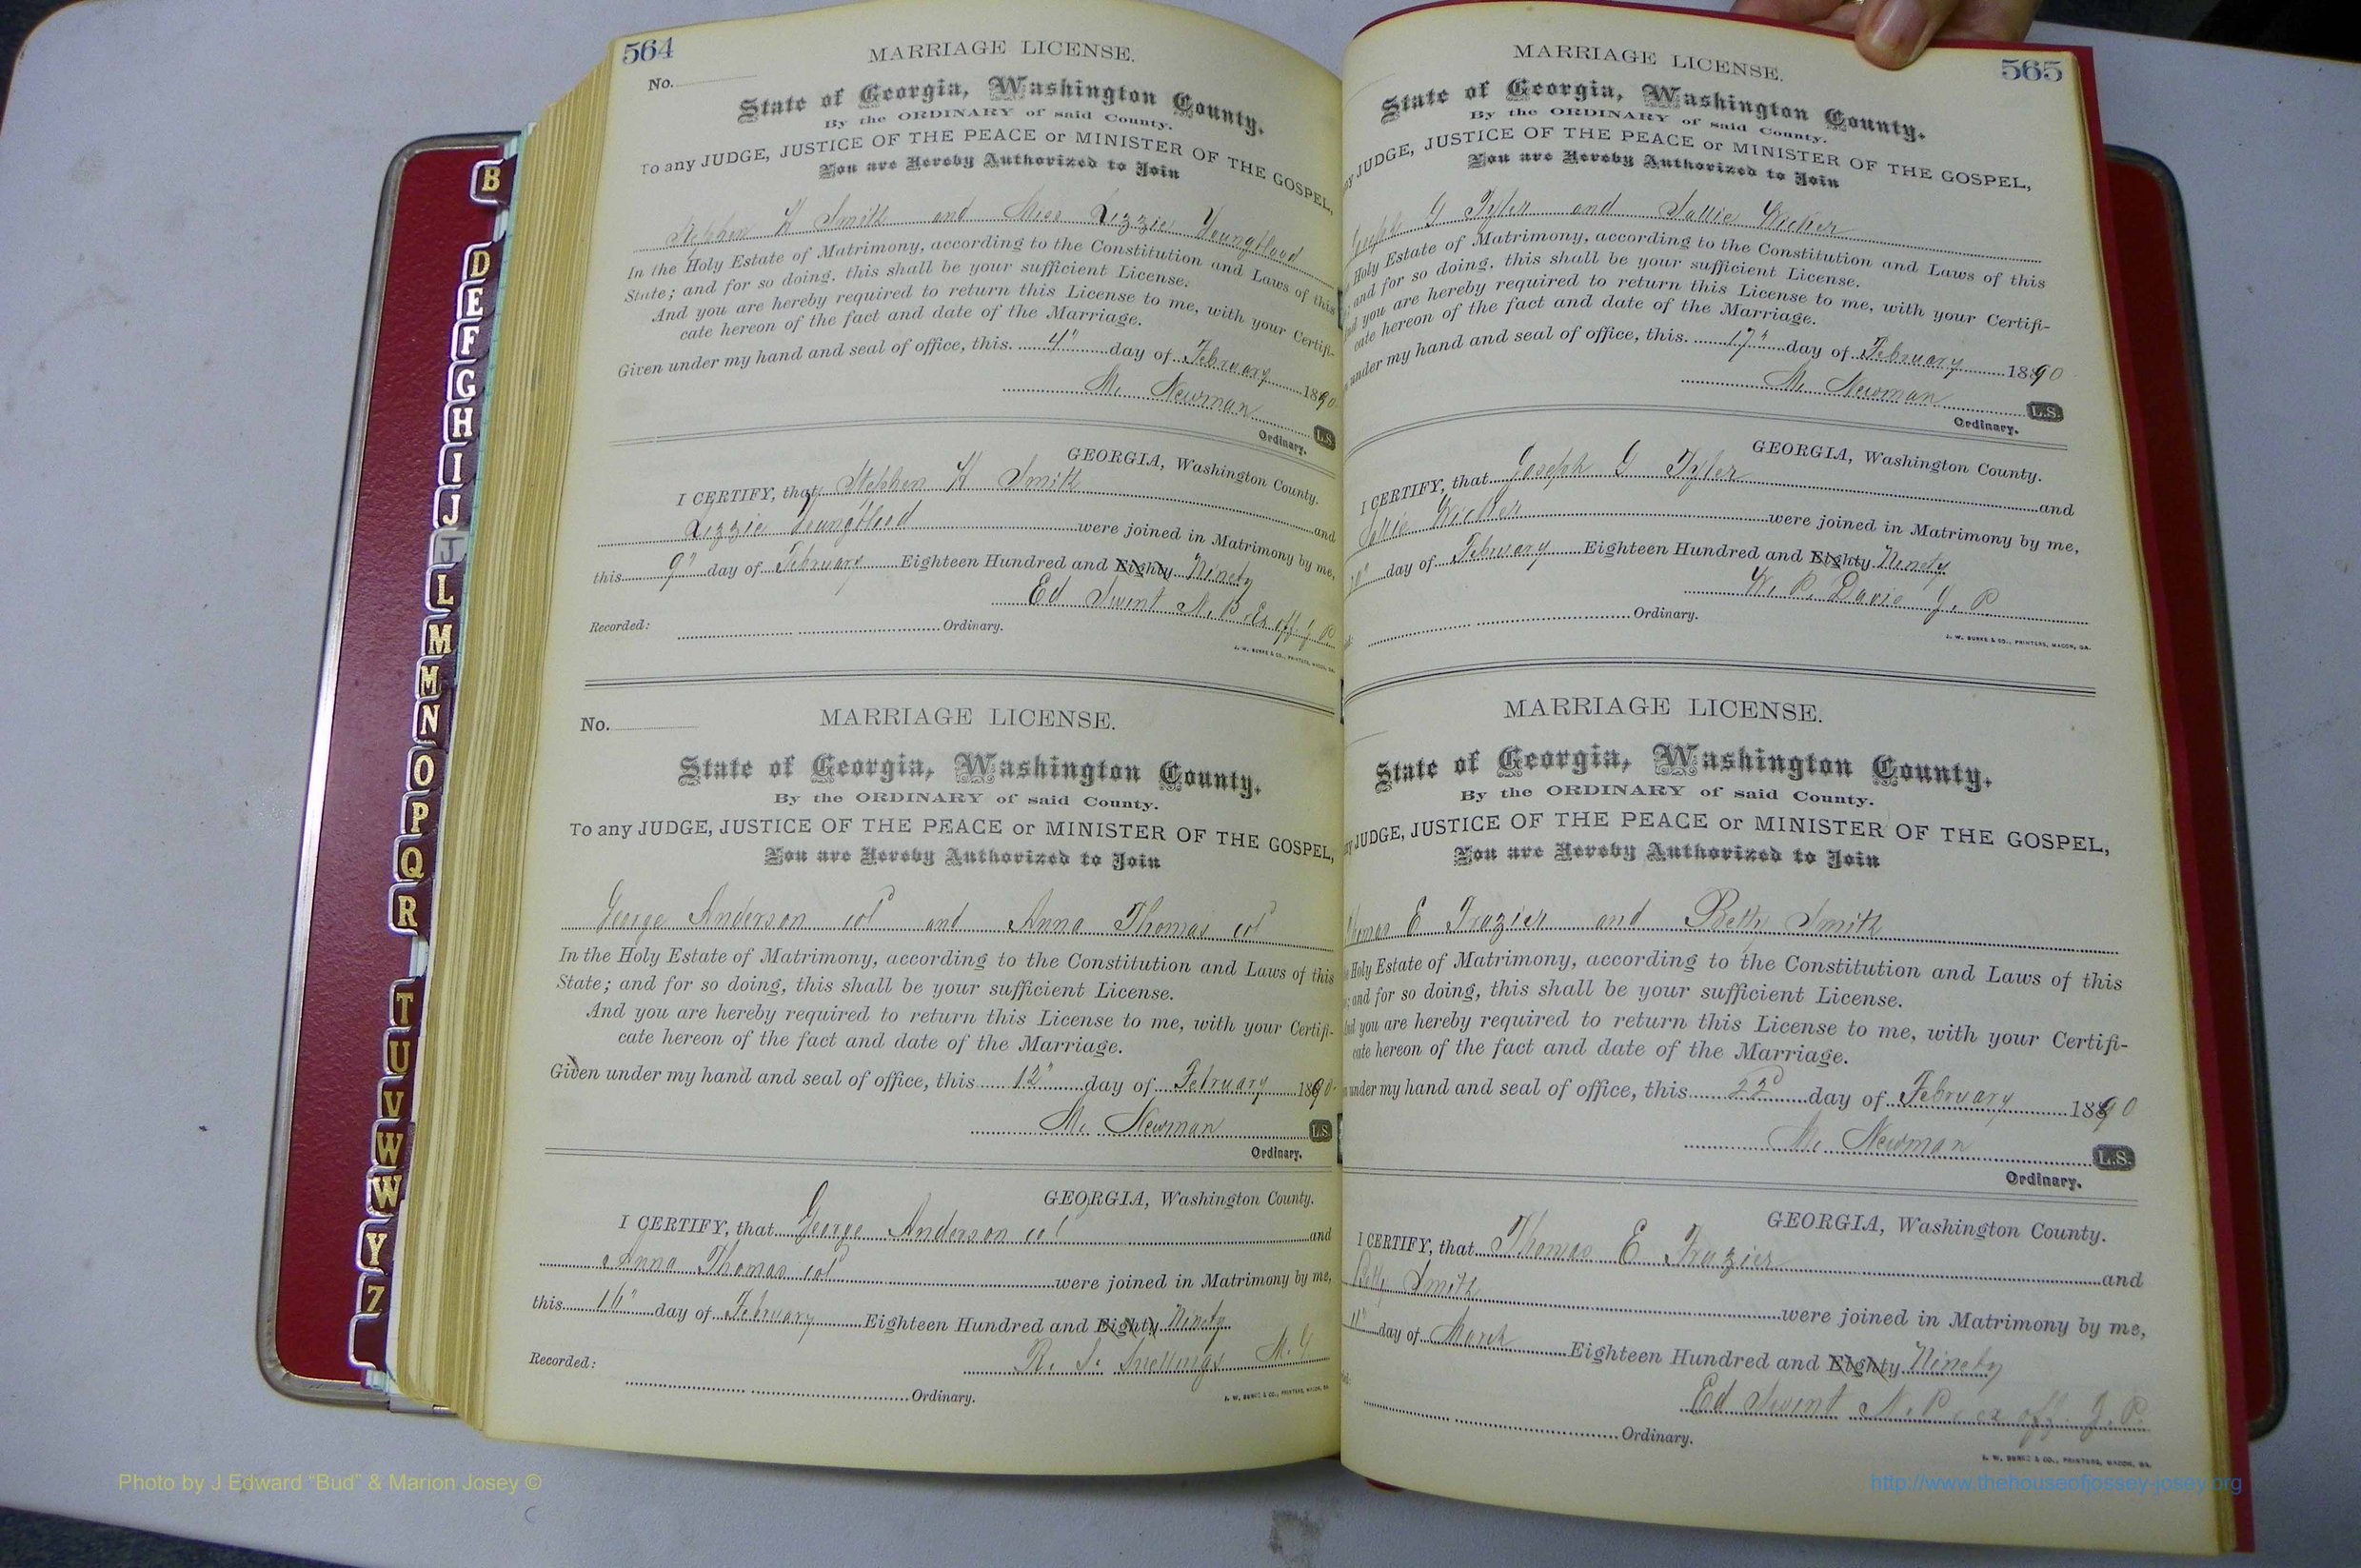 564
MARRIAGE LICENSE.
No.
State of Georgia, Washington County.
By the ORDINARY of said County.
To any JUDGE, JUSTICE OF THE PEACE or MINISTER OF THE GOSPEL,
You are Hereby Authorized to Join
Stephen H Smith and Miss Lizzie Youngblood
In the Holy Estate of Matrimony, according to the Constitution and Laws of this
State; and for so doing, this shall be your sufficient License.
And you are hereby required to return this License to me, with your Certifi-
cate hereon of the fact and date of the Marriage.
Given under my hand and seal of office, this 4" day of February 1890
M. Newman L.S.
Ordinary.
GEORGIA, Washington County.
I CERTIFY, that Stephen H Smith and
Lizzie Youngblood were joined in Matrimony by me,
this 9" day of February Eighteen Hundred and Eighty Ninety
Ed Swint N. P. Ex off J. P.
Recorded: Ordinary.
J. W. BURKE & CO., PRINTERS, MACON, GA.
No.
MARRIAGE LICENSE.
State of Georgia, Washington County.
By the ORDINARY of said County.
To any JUDGE, JUSTICE OF THE PEACE or MINISTER OF THE GOSPEL,
You are Hereby Authorized to Join
George Anderson col and Anna Thomas col
In the Holy Estate of Matrimony, according to the Constitution and Laws of this
State; and for so doing, this shall be your sufficient License.
And you are hereby required to return this License to me, with your Certifi-
cate hereon of the fact and date of the Marriage.
Given under my hand and seal of office, this 12" day of February 1890
M. Newman L.S.
Ordinary.
GEORGIA, Washington County.
I CERTIFY, that George Anderson col and
Anna Thomas col were joined in Matrimony by me,
this 16" day of February Eighteen Hundred and Eighty Ninety
R. S. Snellings M. G
Recorded: Ordinary.
J. W. BURKE & CO., PRINTERS, MACON, GA.
565
MARRIAGE LICENSE.
State of Georgia, Washington County.
By the ORDINARY of said County.
JUDGE, JUSTICE OF THE PEACE or MINISTER OF THE GOSPEL,
You are Hereby Authorized to Join
Joseph G Tyler and Sallie Wicker
Holy Estate of Matrimony, according to the Constitution and Laws of this
and for so doing, this shall be your sufficient License.
you are hereby required to return this License to me, with your Certifi-
cate hereon of the fact and date of the Marriage.
under my hand and seal of office, this 17" day of February 1890
M. Newman L.S.
Ordinary.
GEORGIA, Washington County.
I CERTIFY, that Joseph G Tyler and
Sallie Wicker were joined in Matrimony by me,
day of February Eighteen Hundred and Eighty Ninety
W. R. Davis J. P
Ordinary.
J. W. BURKE & CO., PRINTERS, MACON, GA.
MARRIAGE LICENSE.
State of Georgia, Washington County.
By the ORDINARY of said County.
JUDGE, JUSTICE OF THE PEACE or MINISTER OF THE GOSPEL,
You are Hereby Authorized to Join
Thomas E Frazier and Betty Smith
Holy Estate of Matrimony, according to the Constitution and Laws of this
and for so doing, this shall be your sufficient License.
you are hereby required to return this License to me, with your Certifi-
cate hereon of the fact and date of the Marriage.
under my hand and seal of office, this 22d day of February 1890
M. Newman L.S.
Ordinary.
GEORGIA, Washington County.
I CERTIFY, that Thomas E Frazier and
Betty Smith were joined in Matrimony by me,
11" day of March Eighteen Hundred and Eighty Ninety
Ed Swint N. P. ex off. J. P.
Ordinary.
J. W. BURKE & CO., PRINTERS, MACON, GA.
B
D
E
F
G
H
I
J
J
L
M
M
N
O
P
Q
R
T
U
V
W
W
Y
Z
Photo by J Edward "Bud" & Marion Josey ©
http://www.thehouseofjossey-josey.org